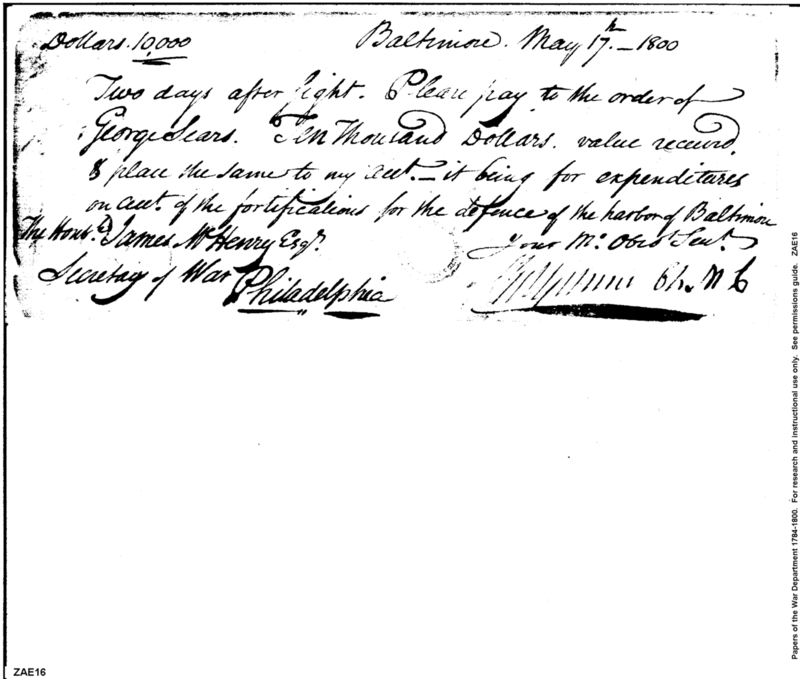 Dollars. 10,000 Baltimore. May 17th. - 1800
Two days after sight. Please pay to the order of
George Sears. Ten Thousand Dollars. value received,
& place the same to my acct. - it being for expenditures
on acct. of the fortifications for the defence of the harbor of Baltimore
The Honble. James McHenry Esqr. Your Mo. Obdt Servt.
Secretary of War Philadelphia
Papers of the War Department 1784-1800. For research and instructional use only. See permissions guide. ZAE16
ZAE16